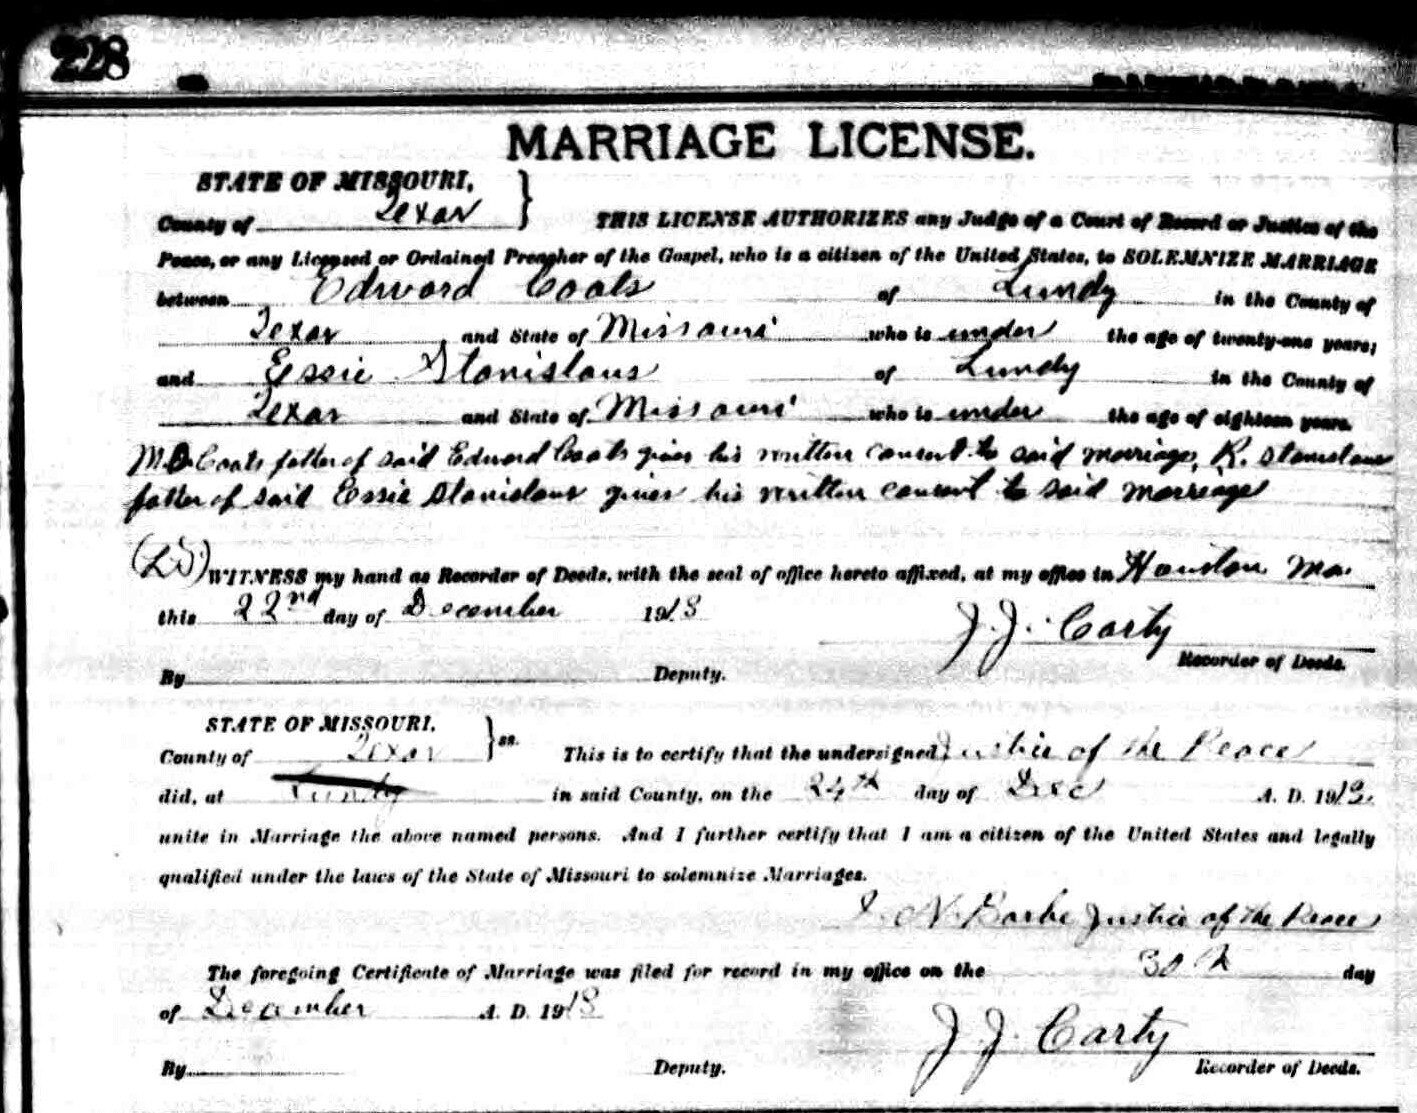 228
MARRIAGE LICENSE.
STATE OF MISSOURI,
County of Texas
THIS LICENSE AUTHORIZES any Judge of a Court of Record or Justice of the
Peace, or any Licensed or Ordained Preacher of the Gospel, who is a citizen of the United States, to SOLEMNIZE MARRIAGE
between Edward Coats of Lundy in the County of
Texas and State of Missouri who is under the age of twenty-one years;
and Essie Stanislaus of Lundy in the County of
Texas and State of Missouri who is under the age of eighteen years.
M.B. Coats father of said Edward Coats gives his written consent to said marriage, R. Stanislaus
father of said Essie Stanislaus gives his written consent to said marriage
(LS) WITNESS my hand as Recorder of Deeds, with the seal of office hereto affixed, at my office in Houston Mo.
this 22nd day of December 1913
J. J. Carty
Recorder of Deeds.
By Deputy.
STATE OF MISSOURI,
County of Texas ss. This is to certify that the undersigned Justice of the Peace
did, at Lundy in said County, on the 24th day of Dec A. D. 1913
unite in Marriage the above named persons. And I further certify that I am a citizen of the United States and legally
qualified under the laws of the State of Missouri to solemnize Marriages.
N. Justice of the Peace
The foregoing Certificate of Marriage was filed for record in my office on the 30th day
of December A. D. 1913
J. J. Carty
By Deputy. Recorder of Deeds.